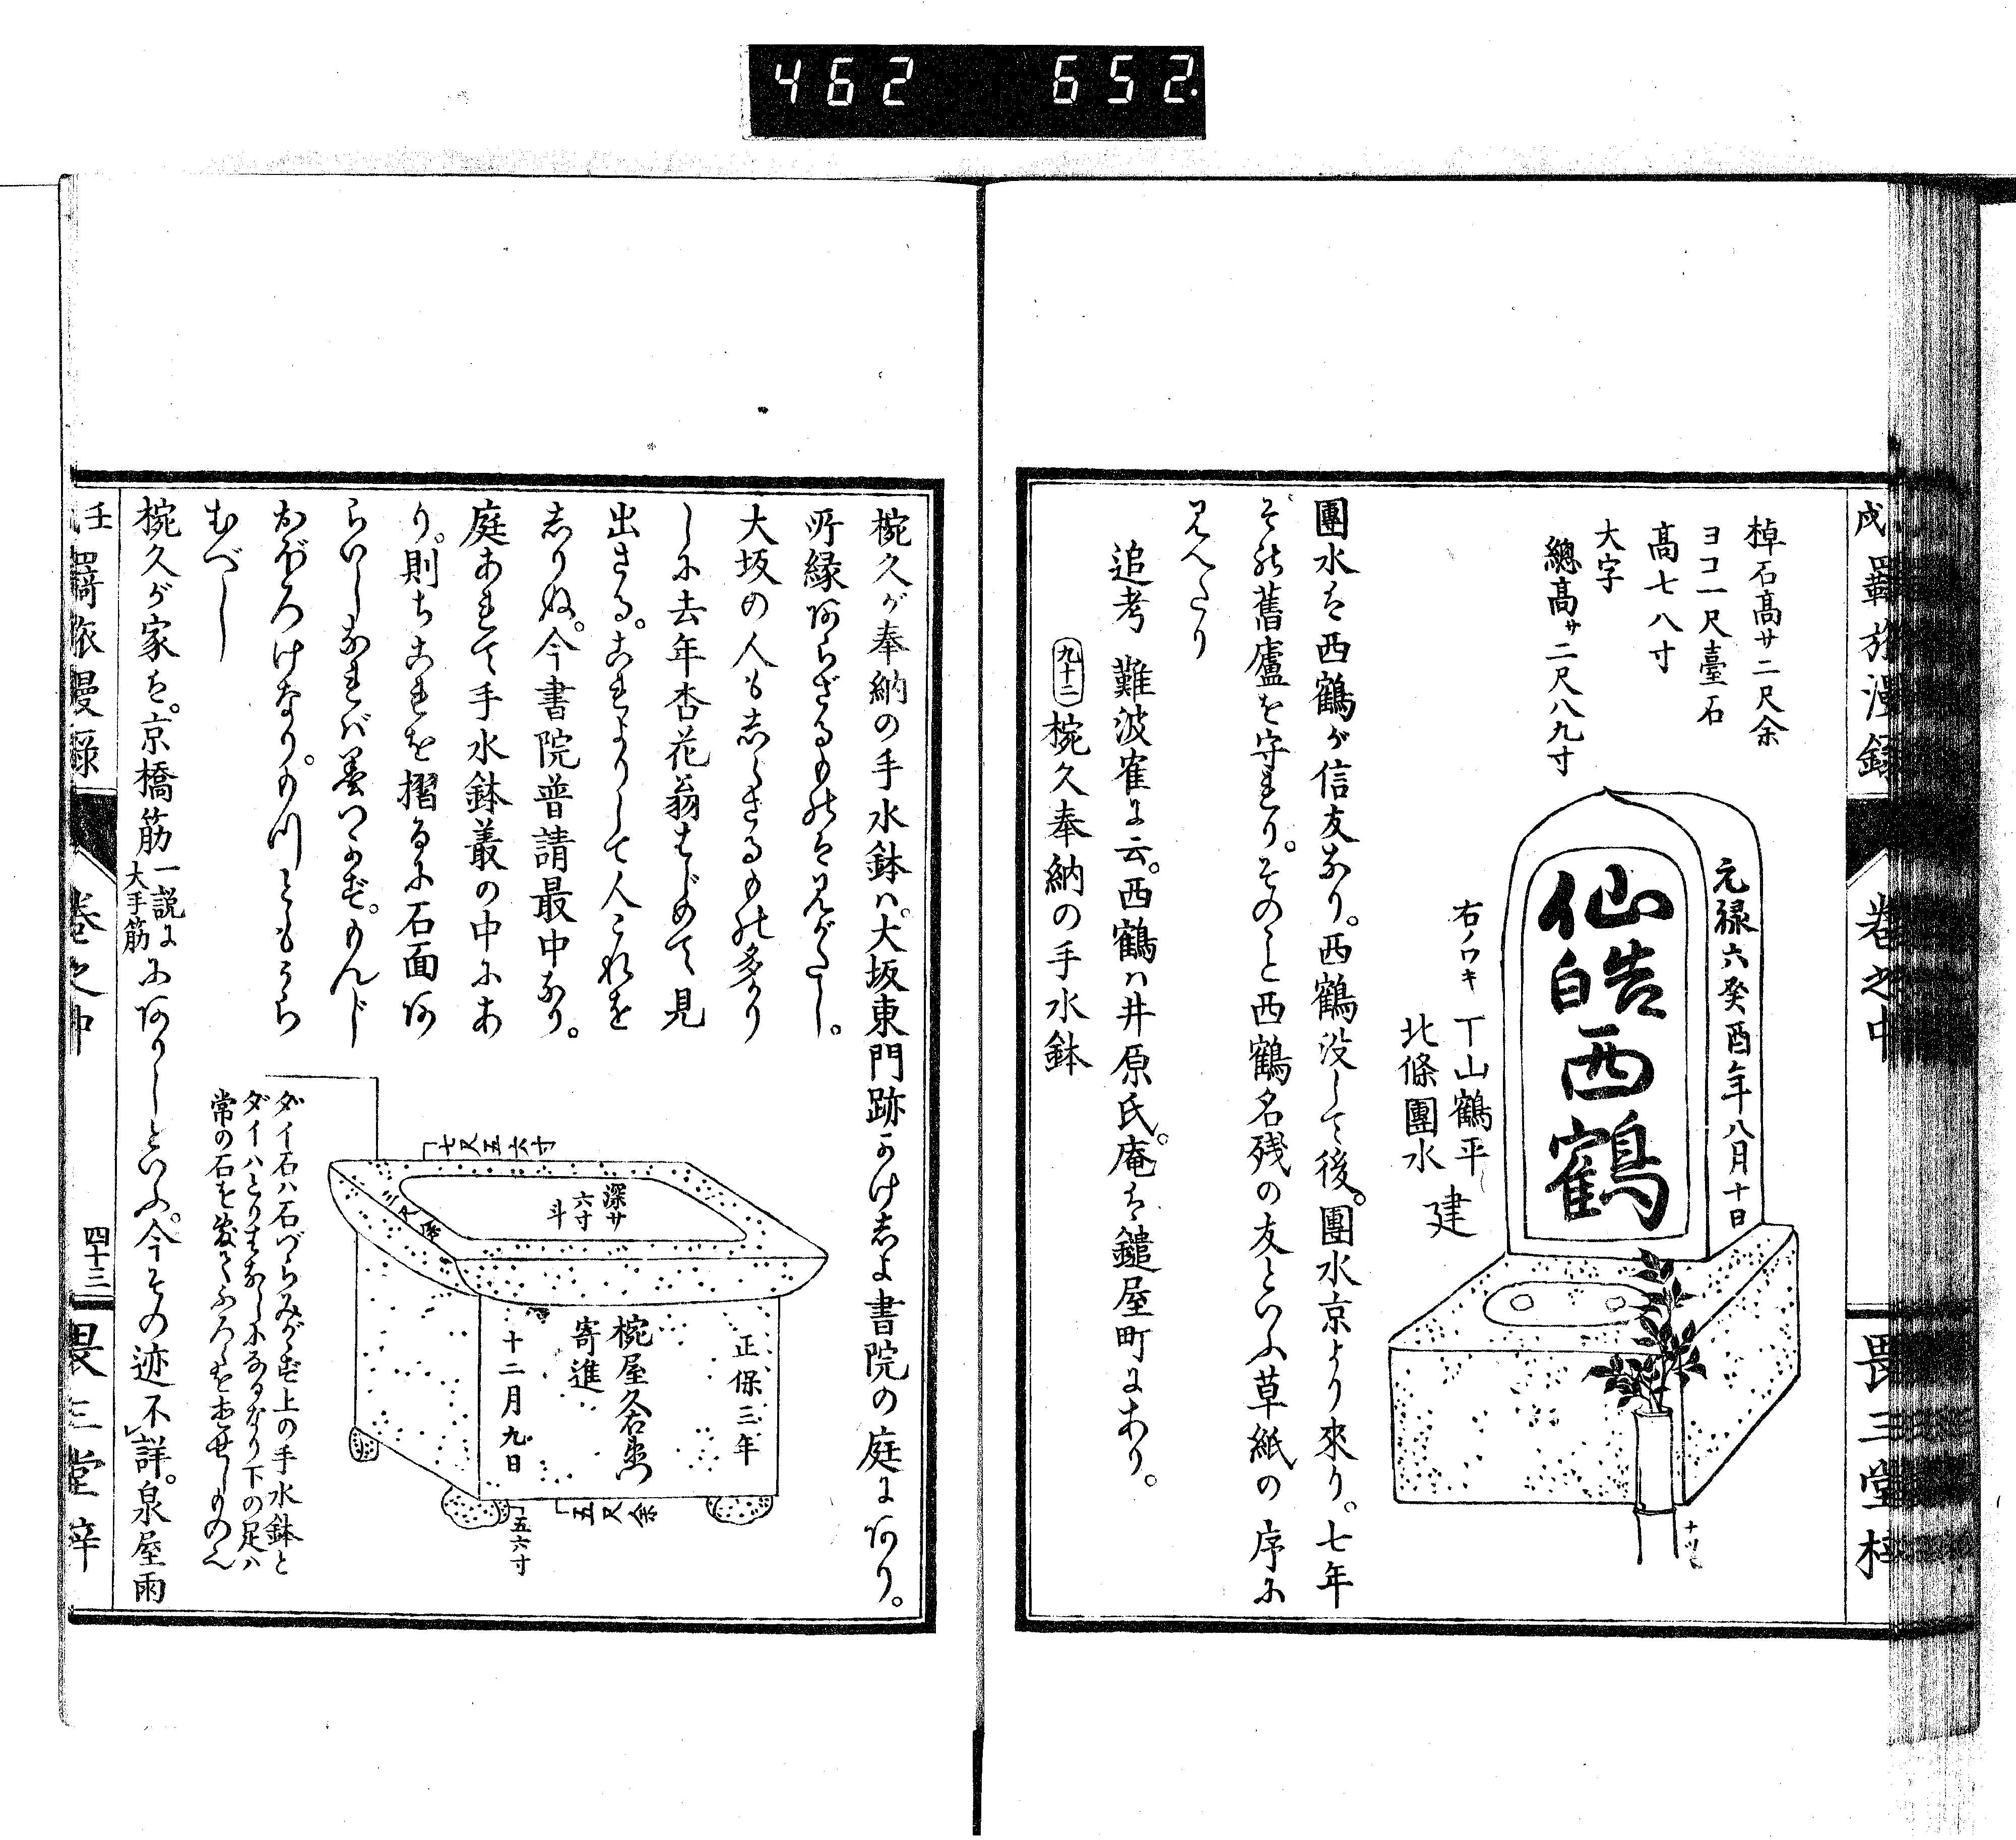 462 652
戌羇旅漫録 巻之中 畏三堂梓
棹石高サ二尺余
ヨコ一尺臺石
高七八寸
大字
總高サ二尺八九寸
元禄六癸酉年八月十日
仙皓西鶴
右ノワキ 丁山鶴平
北條團水 建
團水は西鶴が信友なり。西鶴没して後。團水京より來り。七年
その舊廬を守れり。そのこと西鶴名残の友といふ草紙の序に
見えたり
追考 難波雀に云。西鶴ハ井原氏。庵は鑓屋町にあり。
九十二 椀久奉納の手水鉢
椀久が奉納の手水鉢ハ。大坂東門跡かけしよ書院の庭にあり。
所縁あらざるものは見がたし。
大坂の人もしらざるもの多かり
しに去年杏花翁はじめて見
出さる。これよりして人これを
しりぬ。今書院普請最中なり。
庭あれて手水鉢叢の中にあ
り。則ちこれを摺るに石面あ
らいしなれバ墨つかず。もんじ
おぼろけなり。もの川ともうら
むべし
正保三年
椀屋久右衛門
寄進
十二月九日
深サ
六寸
斗
七尺五六寸
三尺余
五尺余
五六寸
ダイ石ハ石づらみがゝず上の手水鉢と
ダイハとりはなしになるなり下の足ハ
常の石を
椀久が家は。京橋筋一説に大手筋にありしといふ。今その迹不詳。泉屋雨
壬 羇旅漫録 巻之中 四十三 畏三堂梓